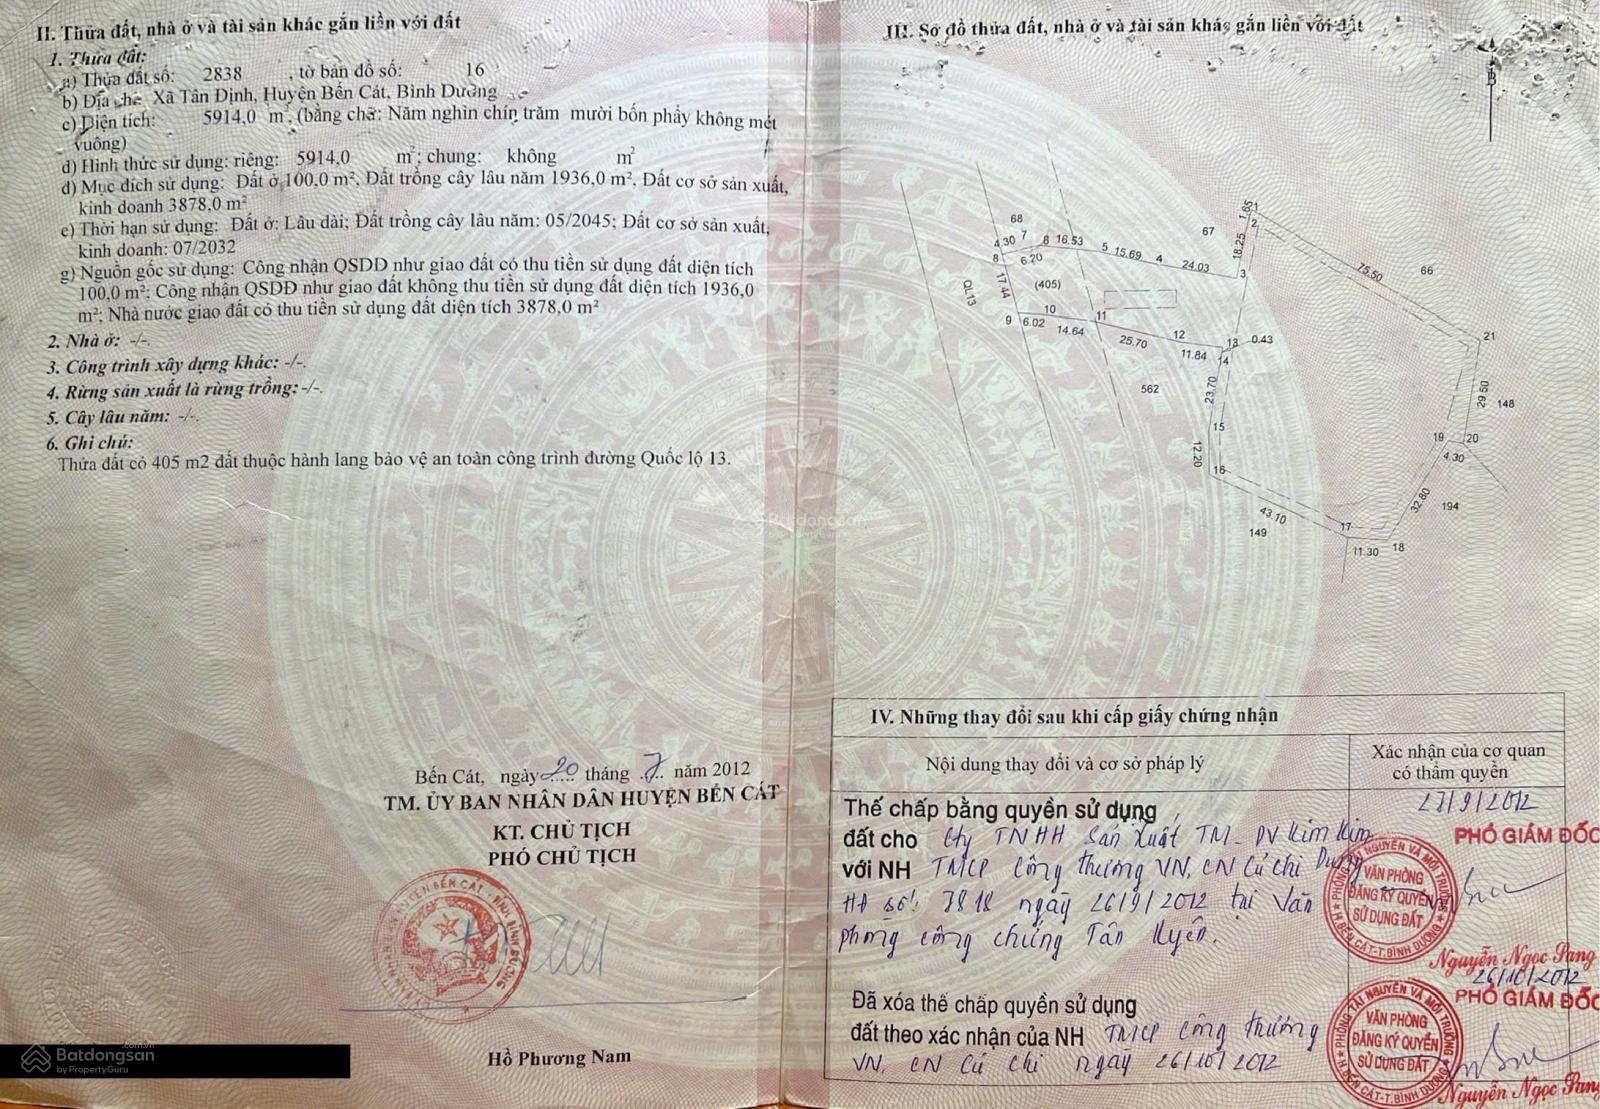 II. Thửa đất, nhà ở và tài sản khác gắn liền với đất
1. Thửa đất:
a) Thửa đất số: 2838 , tờ bản đồ số: 16
b) Địa chỉ: Xã Tân Định, Huyện Bến Cát, Bình Dương
c) Diện tích: 5914,0 m², (bằng chữ: Năm nghìn chín trăm mười bốn phẩy không mét
vuông)
d) Hình thức sử dụng: riêng: 5914,0 m²; chung: không m²
đ) Mục đích sử dụng: Đất ở 100,0 m², Đất trồng cây lâu năm 1936,0 m², Đất cơ sở sản xuất,
kinh doanh 3878,0 m²
e) Thời hạn sử dụng: Đất ở: Lâu dài; Đất trồng cây lâu năm: 05/2045; Đất cơ sở sản xuất,
kinh doanh: 07/2032
g) Nguồn gốc sử dụng: Công nhận QSDĐ như giao đất có thu tiền sử dụng đất diện tích
100,0 m²; Công nhận QSDĐ như giao đất không thu tiền sử dụng đất diện tích 1936,0
m²; Nhà nước giao đất có thu tiền sử dụng đất diện tích 3878,0 m²
2. Nhà ở: -/-.
3. Công trình xây dựng khác: -/-.
4. Rừng sản xuất là rừng trồng: -/-.
5. Cây lâu năm: -/-.
6. Ghi chú:
Thửa đất có 405 m2 đất thuộc hành lang bảo vệ an toàn công trình đường Quốc lộ 13.
Bến Cát, ngày 20 tháng 7 năm 2012
TM. ỦY BAN NHÂN DÂN HUYỆN BẾN CÁT
KT. CHỦ TỊCH
PHÓ CHỦ TỊCH
Hồ Phương Nam
Batdongsan.com.vn
by PropertyGuru
III. Sơ đồ thửa đất, nhà ở và tài sản khác gắn liền với đất
B
1
1.65
2
68
67
4.30 7 6 16.53 5 15.69 4 24.03 3
18.25
75.50
66
8 6.20
(405)
QL13
17.44
9 6.02 10 14.64 11 25.70 12 11.84 13 0.43
14
21
29.50
148
562
23.70
15
12.20
16
19 20
4.30
32.80
194
43.10
149
17
11.30 18
Batdongsan
by PropertyGuru
IV. Những thay đổi sau khi cấp giấy chứng nhận
Nội dung thay đổi và cơ sở pháp lý
Xác nhận của cơ quan
có thẩm quyền
Thế chấp bằng quyền sử dụng
đất cho Cty TNHH Sản Xuất TM - DV Kim Kim
với NH TMCP Công thương VN, CN Củ Chi
HĐ số: 3818 ngày 26/9/2012 tại Văn
phòng công chứng Tân Uyên.
27/9/2012
PHÓ GIÁM ĐỐC
PHÒNG TÀI NGUYÊN VÀ MÔI TRƯỜNG
VĂN PHÒNG
ĐĂNG KÝ QUYỀN
SỬ DỤNG ĐẤT
H BẾN CÁT-T.BÌNH DƯƠNG
Nguyễn Ngọc Sang
Đã xóa thế chấp quyền sử dụng
đất theo xác nhận của NH TMCP Công thương
VN, CN Củ Chi ngày 26/10/2012
26/10/2012
PHÓ GIÁM ĐỐC
PHÒNG TÀI NGUYÊN VÀ MÔI TRƯỜNG
VĂN PHÒNG
ĐĂNG KÝ QUYỀN
SỬ DỤNG ĐẤT
H BẾN CÁT-T.BÌNH DƯƠNG
Nguyễn Ngọc Sang